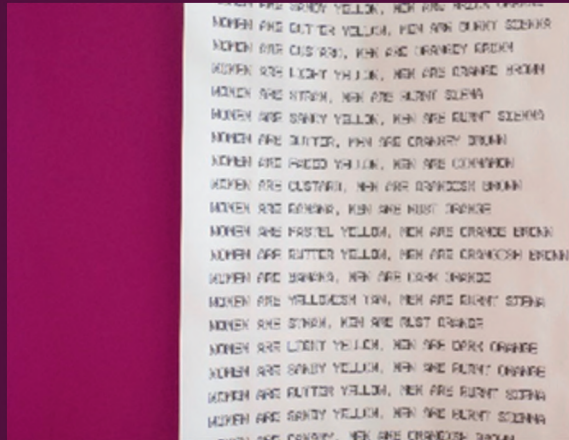 WOMEN ARE SANDY YELLOW, MEN ARE
WOMEN ARE BUTTER YELLOW, MEN ARE BURNT SIENNA
WOMEN ARE CUSTARD, MEN ARE ORANGEY BROWN
WOMEN ARE LIGHT YELLOW, MEN ARE ORANGE BROWN
WOMEN ARE STRAW, MEN ARE BURNT SIENA
WOMEN ARE SANDY YELLOW, MEN ARE BURNT SIENNA
WOMEN ARE BUTTER, MEN ARE ORANGEY BROWN
WOMEN ARE FADED YELLOW, MEN ARE CINNAMON
WOMEN ARE CUSTARD, MEN ARE ORANGISH BROWN
WOMEN ARE BANANA, MEN ARE RUST ORANGE
WOMEN ARE PASTEL YELLOW, MEN ARE ORANGE BROWN
WOMEN ARE BUTTER YELLOW, MEN ARE ORANGISH BROWN
WOMEN ARE BANANA, MEN ARE DARK ORANGE
WOMEN ARE YELLOWISH TAN, MEN ARE BURNT SIENNA
WOMEN ARE STRAW, MEN ARE RUST ORANGE
WOMEN ARE LIGHT YELLOW, MEN ARE DARK ORANGE
WOMEN ARE SANDY YELLOW, MEN ARE BURNT ORANGE
WOMEN ARE BUTTER YELLOW, MEN ARE BURNT SIENNA
WOMEN ARE SANDY YELLOW, MEN ARE BURNT SIENNA
MEN ARE ORANGISH